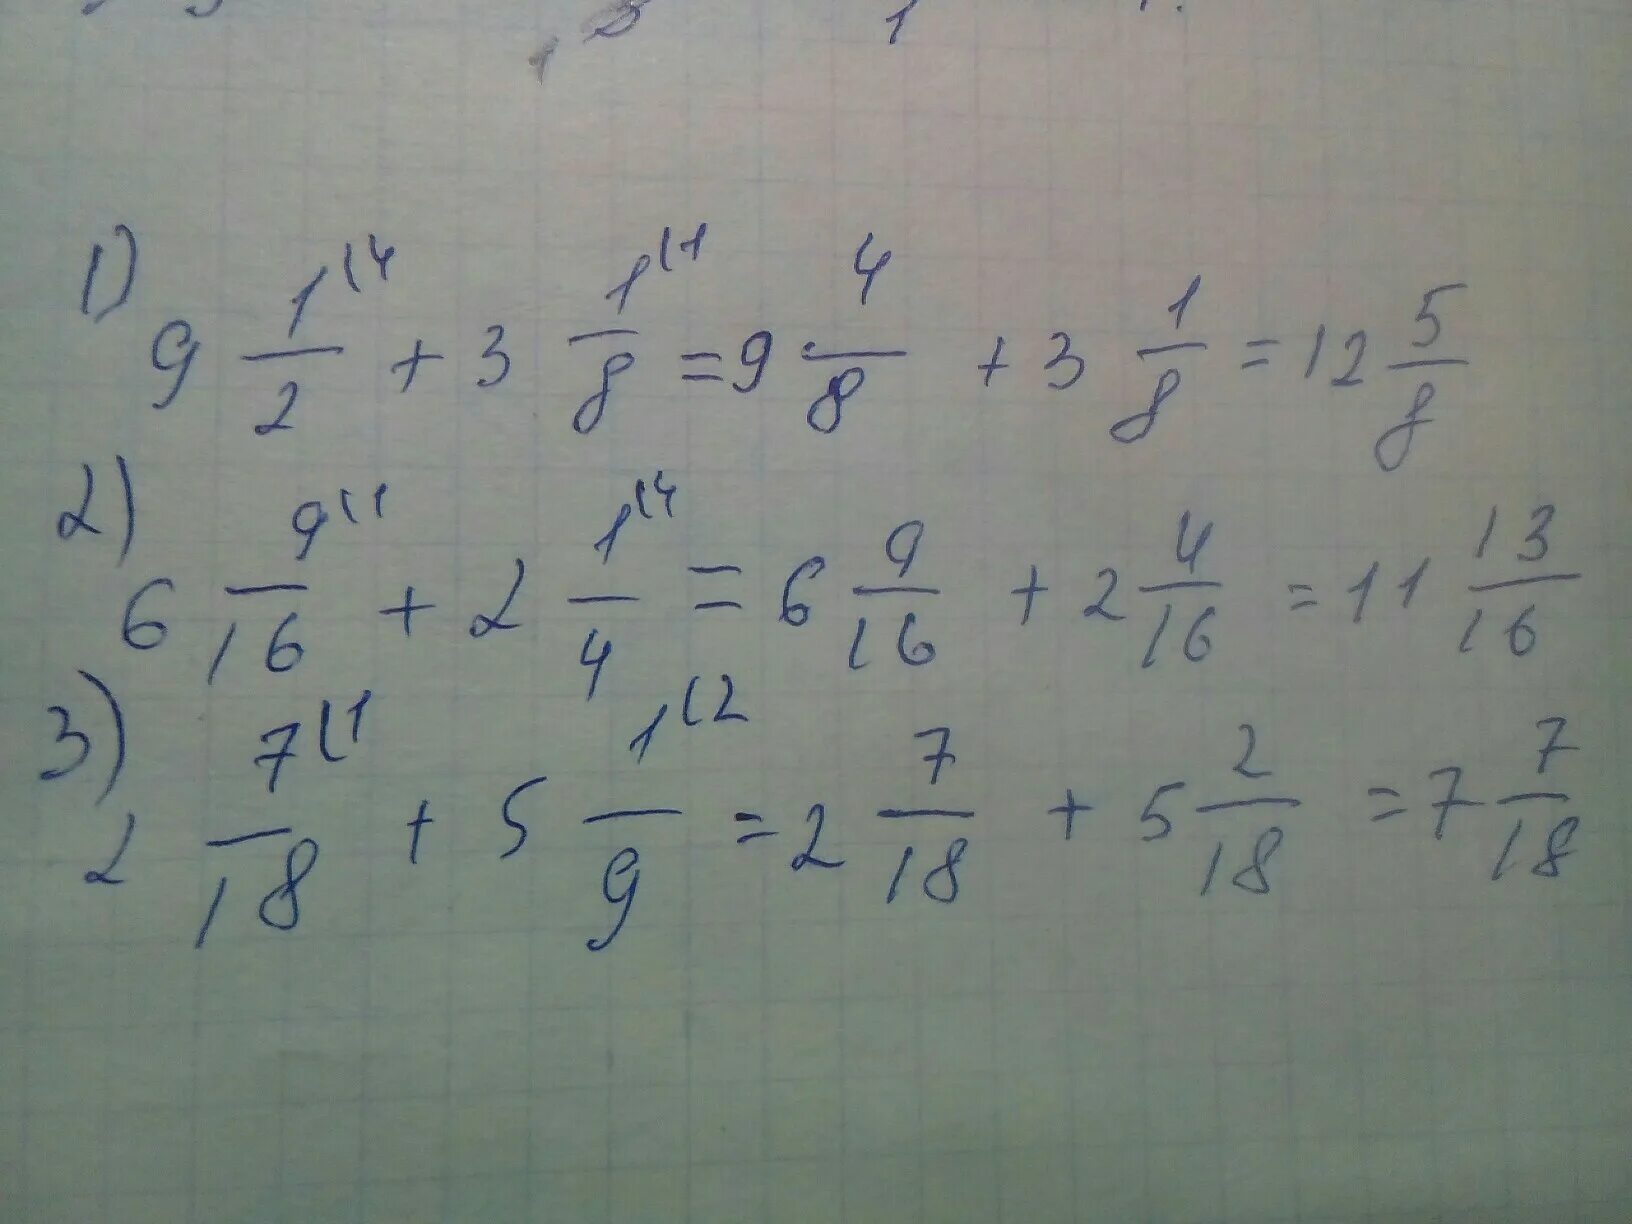 1) 9 1/2 (4 + 3 1/8 (1 = 9 4/8 + 3 1/8 = 12 5/8
2) 6 9/16 (1 + 2 1/4 (4 = 6 9/16 + 2 4/16 = 11 13/16
3) 2 7/18 (1 + 5 1/9 (2 = 2 7/18 + 5 2/18 = 7 7/18